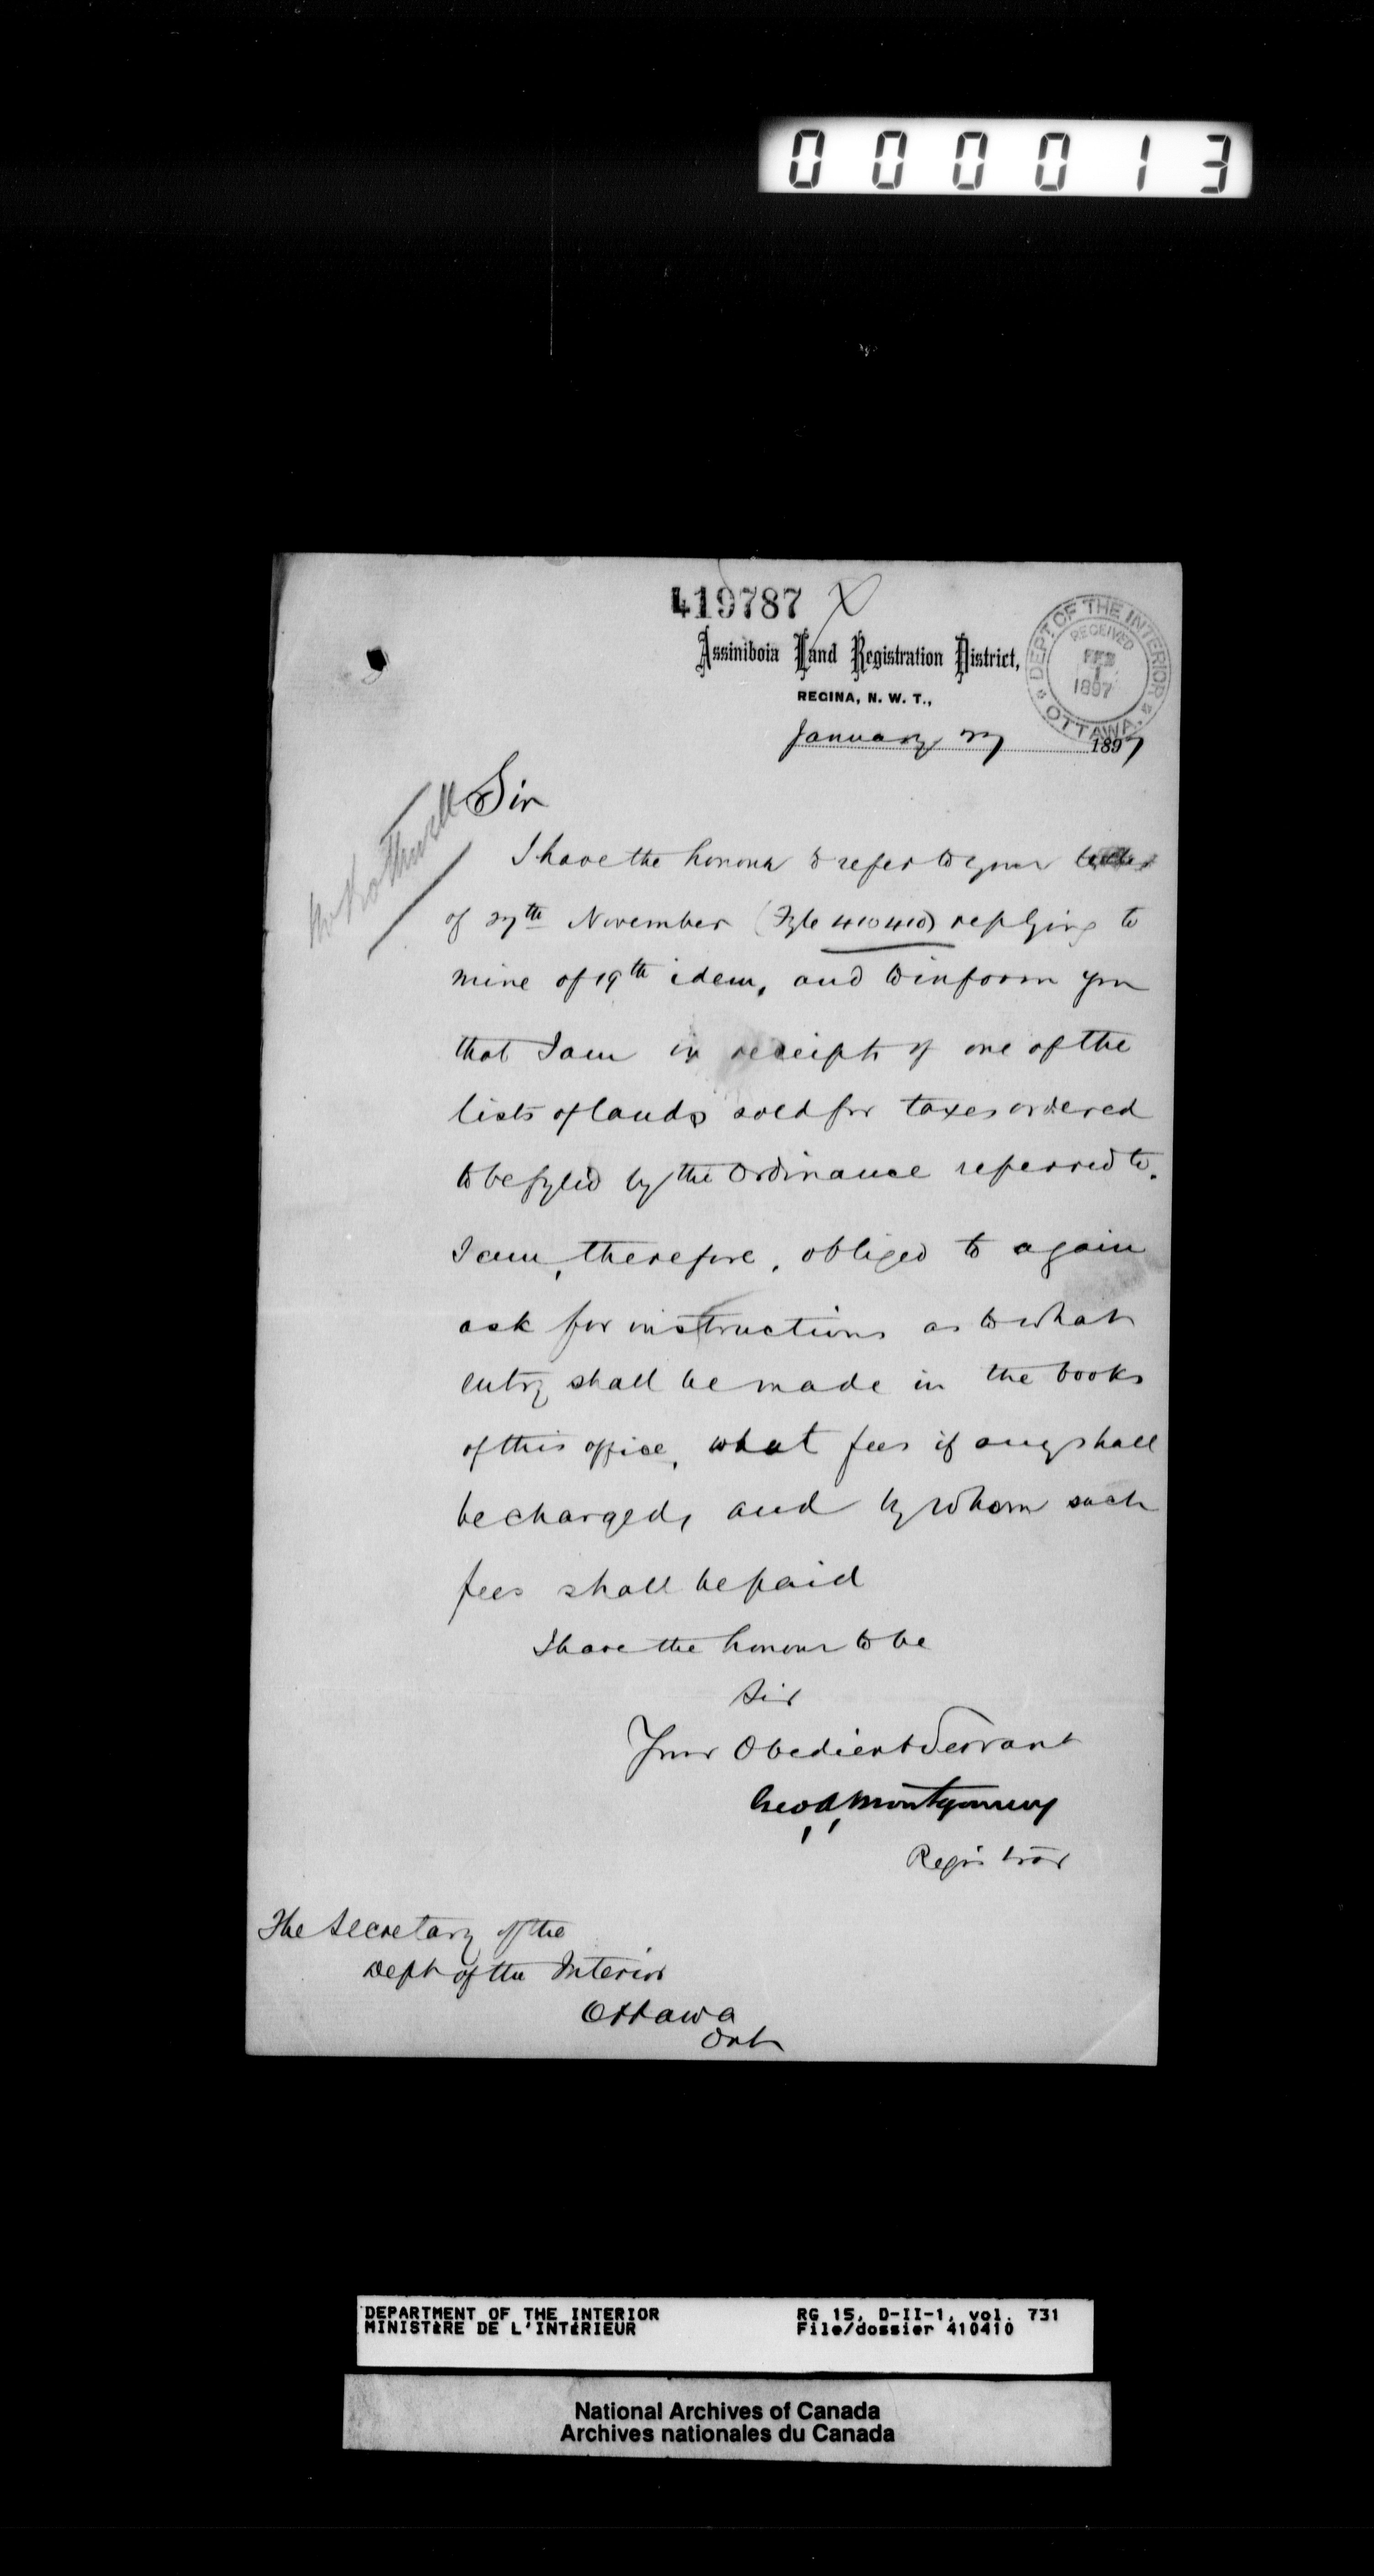 000013
419787 X
Assiniboia Land Registration District,
REGINA, N. W. T.,
DEPT OF THE INTERIOR
RECEIVED
FEB
1
1897
OTTAWA.
January 27 1897
Mr Rothwell
Sir
I have the honour to refer to your letter
of 27th November (Fyle 410410) replying to
mine of 19th idem, and to inform you
that I am in receipt of one of the
lists of lands sold for taxes ordered
to be fyled by the Ordinance referred to.
I am, therefore, obliged to again
ask for instructions as to what
entry shall be made in the books
of this office, what fees if any shall
be charged, and by whom such
fees shall be paid
I have the honour to be
Sir
Your Obedient Servant
Geo A Montgomery
Registrar
The Secretary of the
Dept of the Interior
Ottawa
Ont
DEPARTMENT OF THE INTERIOR RG 15, D-II-1, vol. 731
MINISTÈRE DE L'INTÉRIEUR File/dossier 410410
National Archives of Canada
Archives nationales du Canada